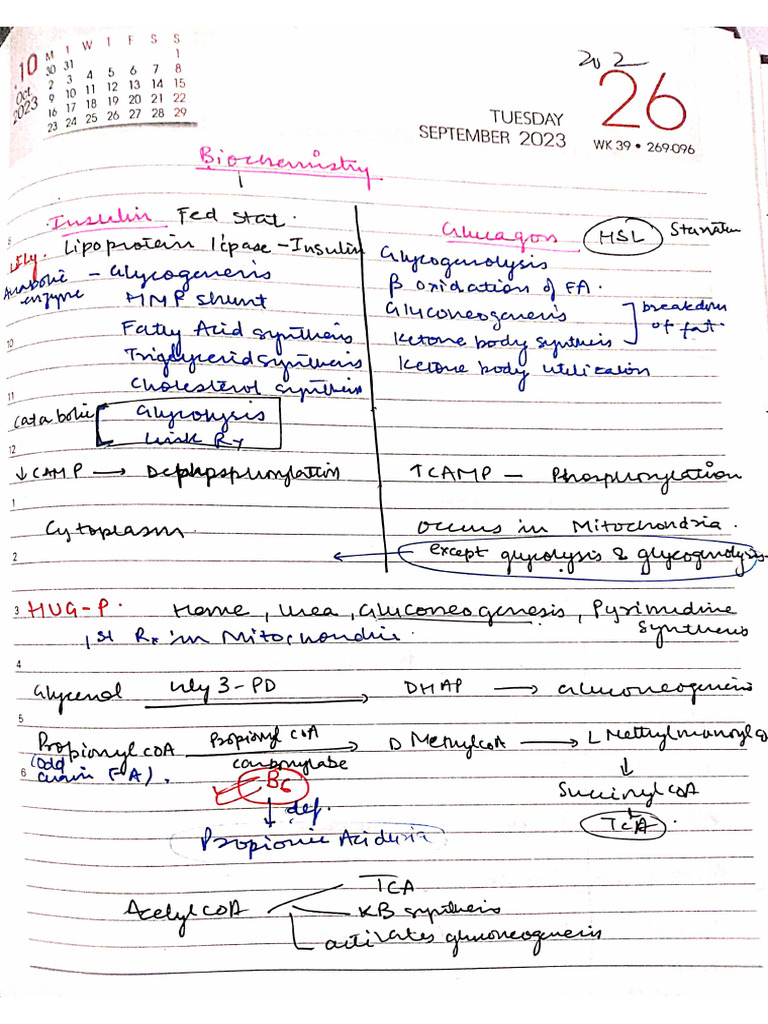 10
Oct.
2023
M T W T F S S
30 31 1
2 3 4 5 6 7 8
9 10 11 12 13 14 15
16 17 18 19 20 21 22
23 24 25 26 27 28 29
202
26
TUESDAY
SEPTEMBER 2023
WK 39 • 269-096
Biochemistry
Insulin Fed Stat.
Lipoprotein lipase - Insulin
Anabolic enzyme - Glycogenesis
HMP Shunt
Fatty Acid synthesis
10
Triglycerid synthesis
11
Cholesterol synthesis
Catabolic Glycolysis
Link Rx
12
↓ CAMP → Dephosphorylation
1
Cytoplasm.
2
Glucagon HSL
Glycogenolysis
β oxidation of FA.
Gluconeogenesis breakdown of fat.
Ketone body synthesis
Ketone body utilization
↑ CAMP - Phosphorylation
occurs in Mitochondria.
except glycolysis & glycogenolysis
3 HUG-P. Heme, Urea, Gluconeogenesis, Pyrimidine Synthesis
1st Rx in Mitochondria.
4
Glycerol Gly 3-PD → DHAP → Gluconeogenesis
5
Propionyl CoA Propionyl CoA carboxylase → D Methyl CoA → L Methylmanoyl
(Odd chain FA).
6
B6
Succinyl CoA
↓ def.
TCA.
Propionic Aciduria
TCA
Acetyl CoA KB synthesis
activates gluconeogenesis